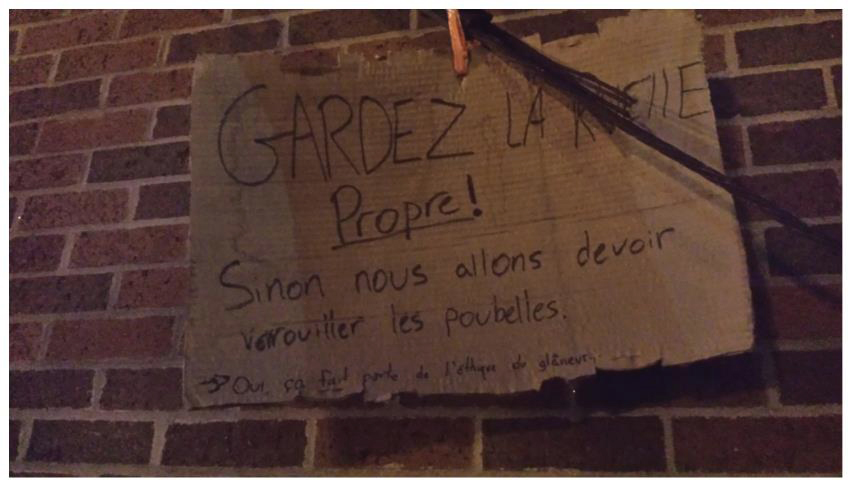 GARDEZ LA RUEllE
Propre!
Sinon nous allons devoir
verrouiller les poubelles.
→ Oui, ça fait partie de l'éthique du glâneur.